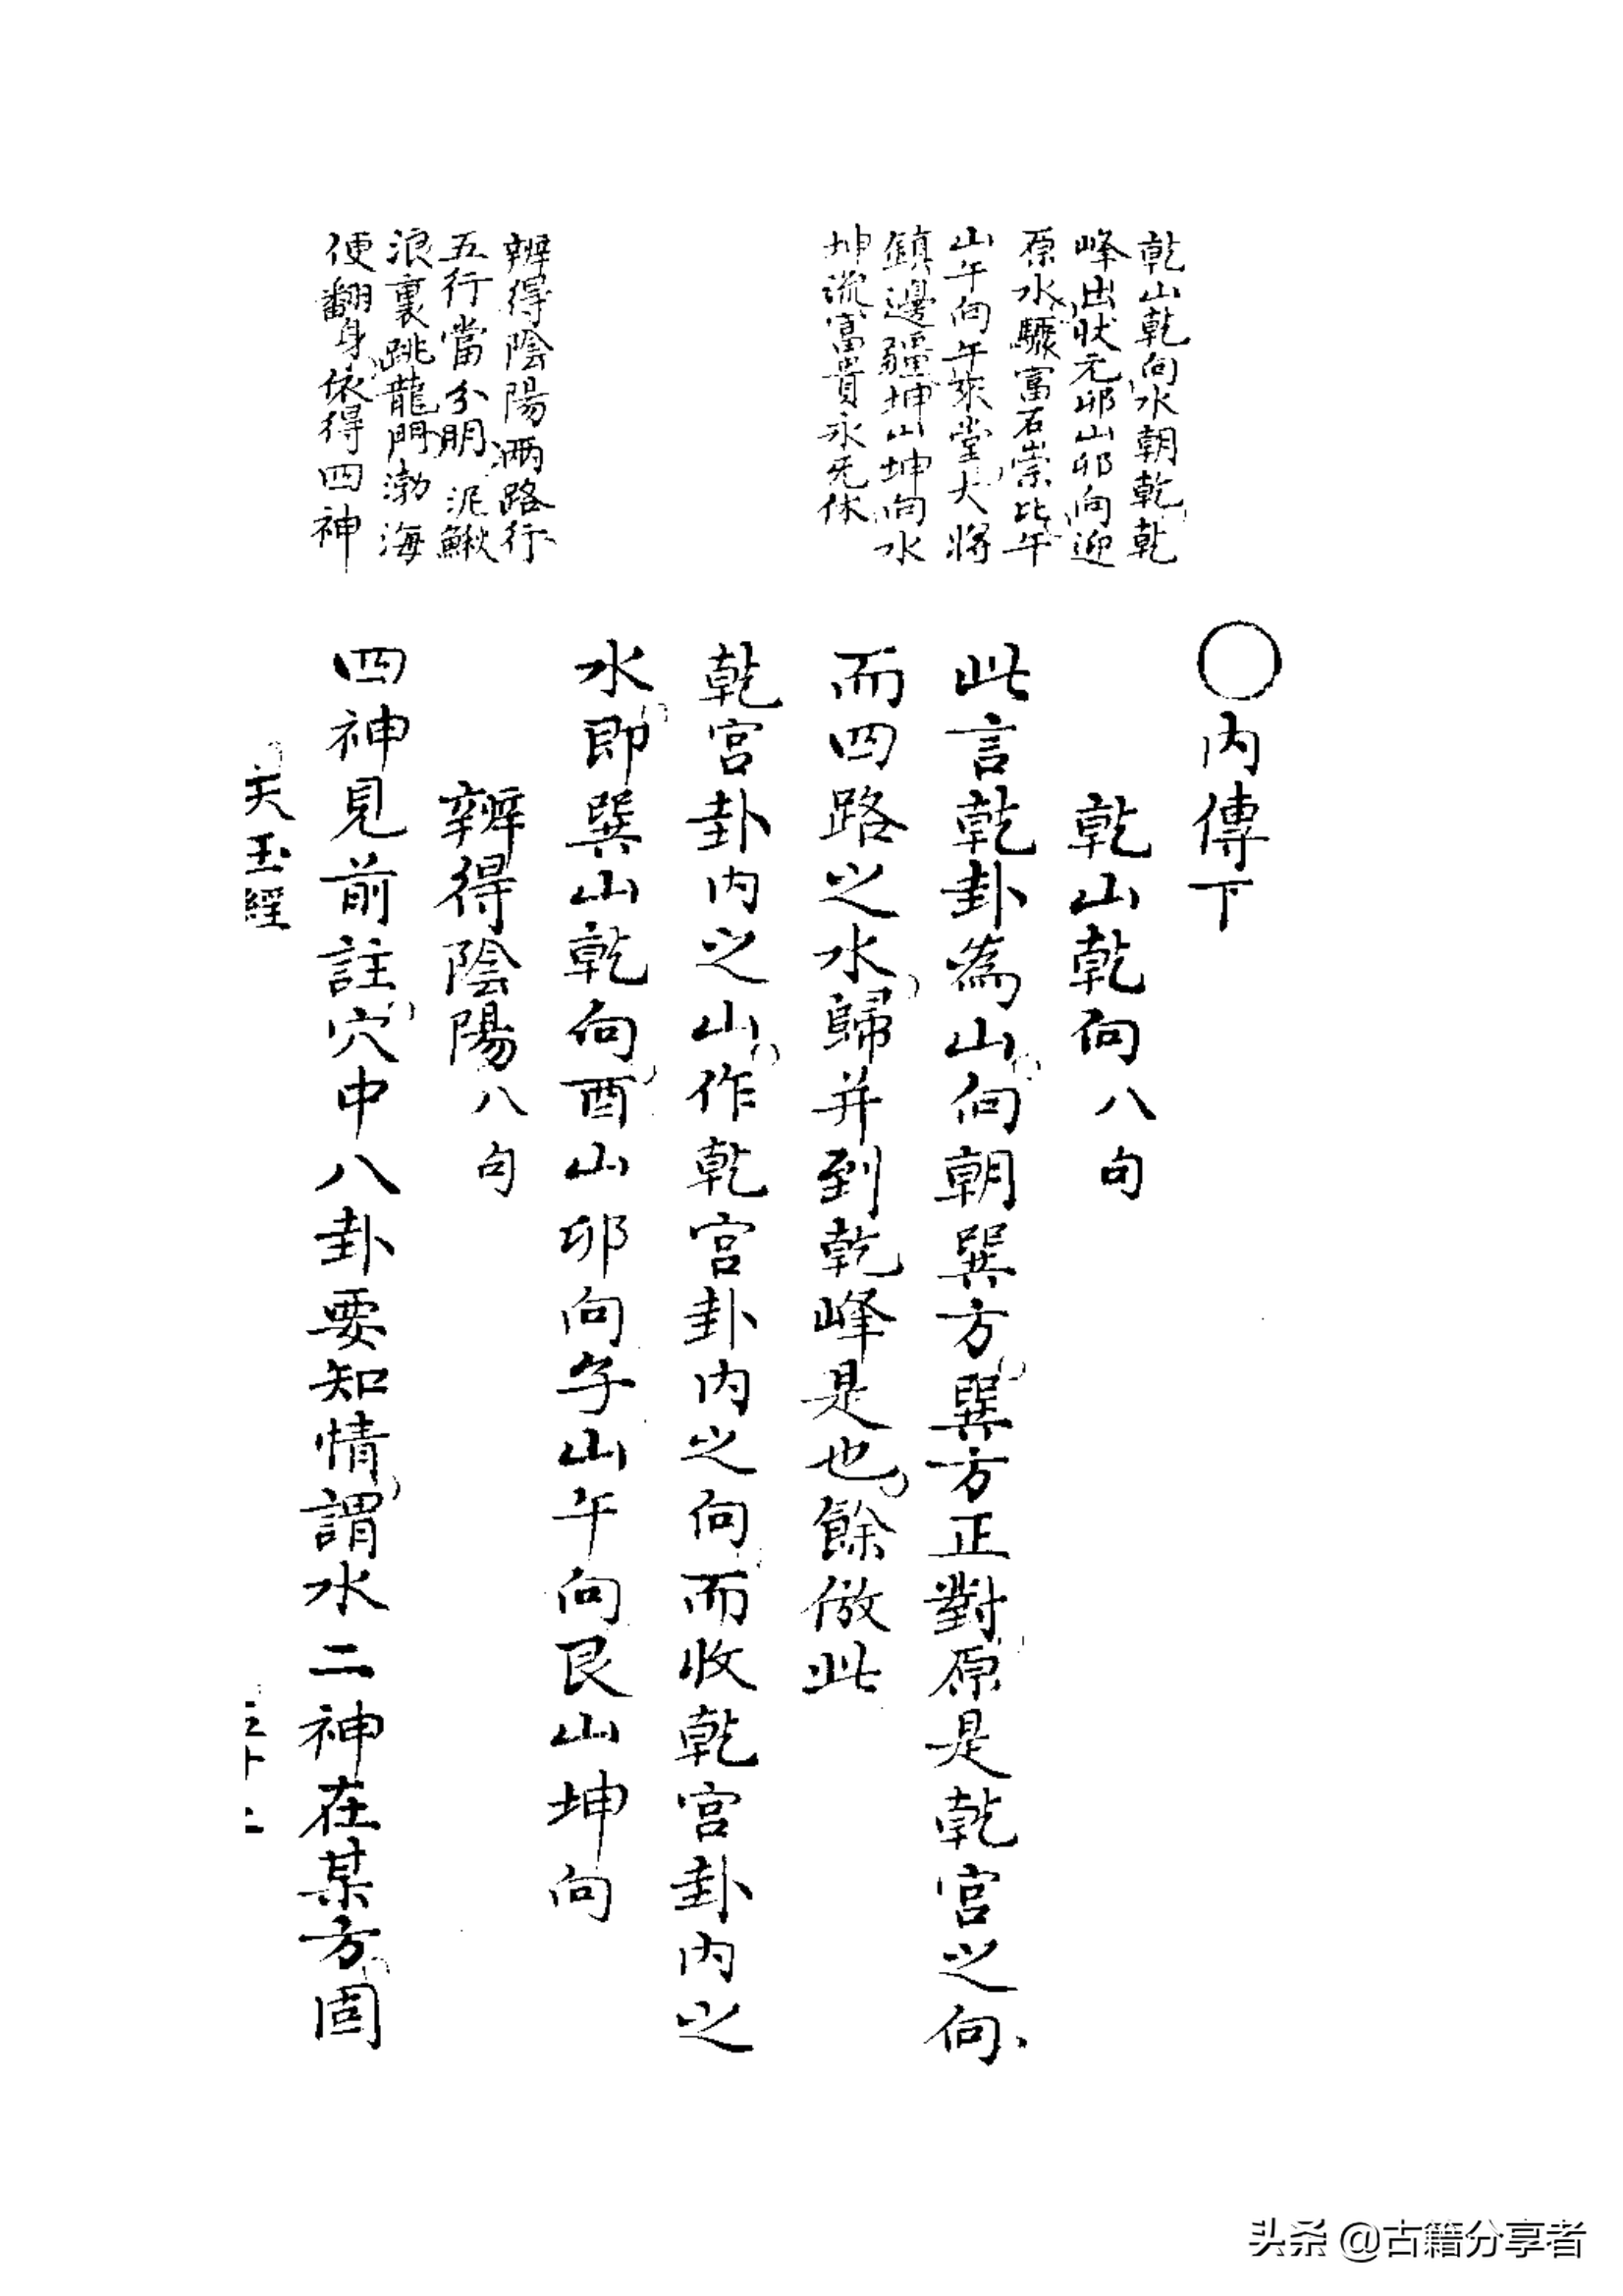 乾山乾向水朝乾乾
峰出狀元卯山卯向迎
原水驟富石崇比午
山午向午來堂大將
鎮邊疆坤山坤向水
坤流富貴永无休
辨得陰陽兩路行
五行當分朋泥鰍
浪裏跳龍門渤海
便翻身依得四神
○內傳下
乾山乾向八句
此言乾卦為山向朝巽方巽方正對原是乾宮之向
而四路之水歸并到乾峰是也餘倣此
乾宮卦內之山作乾宮卦內之向而收乾宮卦內之
水即巽山乾向酉山卯向子山午向艮山坤向
辨得陰陽八句
四神見前註穴中八卦要知情謂水二神在某方固
天玉經
頭條 @古籍分享者